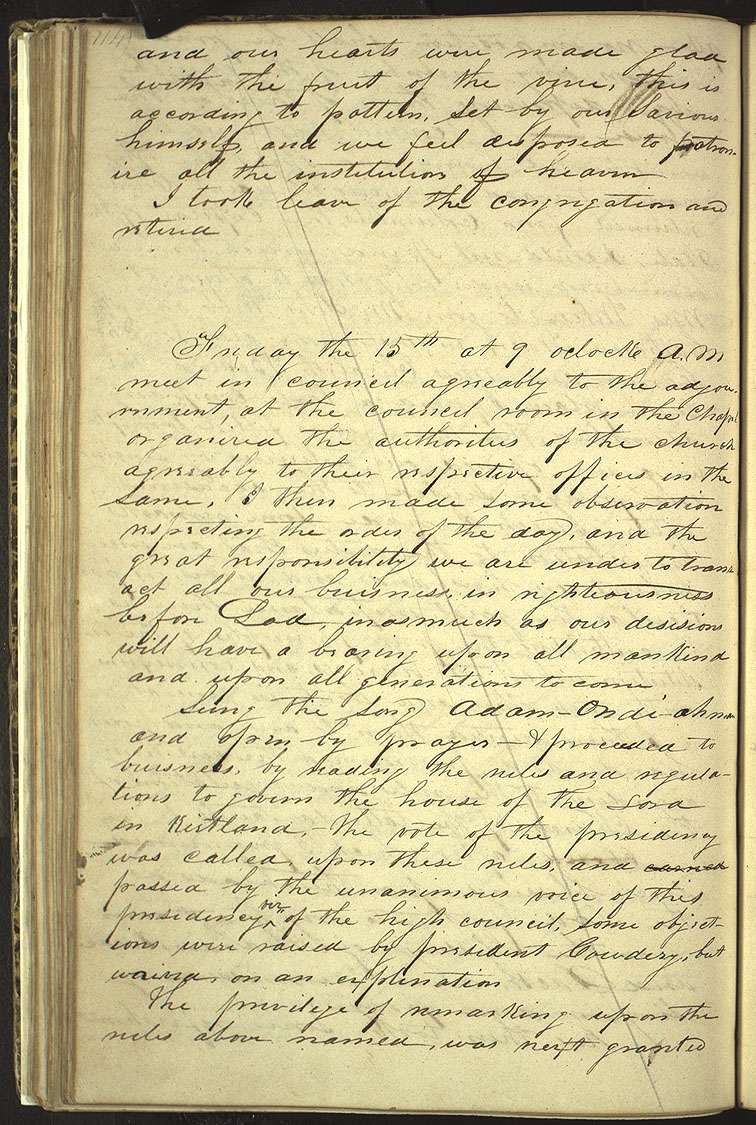 114
and our hearts were made glad
with the fruit of the vine, this is
according to pattern, set by our Saviour
himself, and we feel disposed to patron-
ize all the institution of heaven
I took leave of the congregation and
retired
Friday the 15th at 9 oclock A.M
meet in council agreably to the adjou-
rnment, at the council room in the Chapel
organized the authorities of the church
agreeably to their respective offices in the
same, I then made some observation
respecting the order of the day, and the
great responsibility we are under to trans-
act all our buisness, in righteousness
before God, inasmuch as our desisions
will have a bearing upon all mankind
and upon all generations to come
Sung the song Adam-Ondi-ahman
and open by prayer — & proceeded to
buisness, by reading the rules and regula-
tions to govern the house of the Lord
in Kirtland, - the vote of the presidency
was called, upon these rules, and earned
passed by the unanimous voice of this
presidency of the high council, some object-
ions were raised by president Cowdery, but
waived, on an explination
The privilege of remarking upon the
rules above named, was next granted